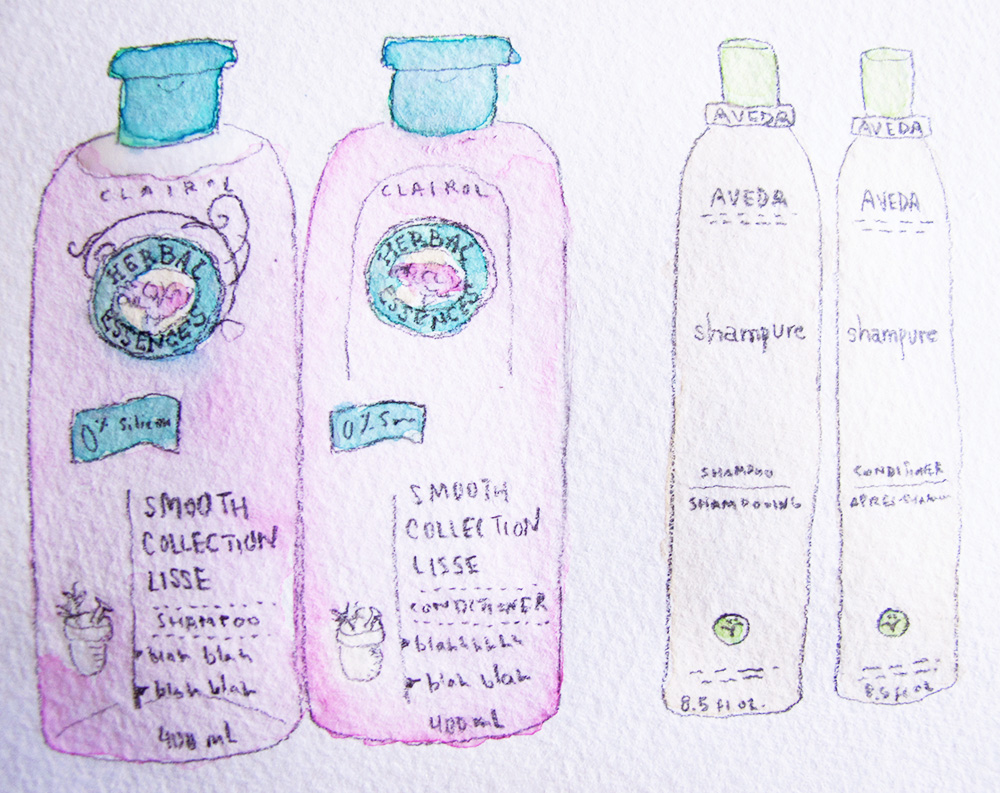 CLAIROL
HERBAL
ESSENCES
0% Silicon
SMOOTH
COLLECTION
LISSE
SHAMPOO
blah blah
blah blah
400 mL
CLAIROL
HERBAL
ESSENCES
0%
SMOOTH
COLLECTION
LISSE
CONDITIONER
blahhhhh
blah blah
400mL
AVEDA
AVEDA
shampure
SHAMPOO
SHAMPOOING
8.5 fl oz.
AVEDA
AVEDA
shampure
CONDITIONER
APRES-SHAMPOO
8.5 fl oz